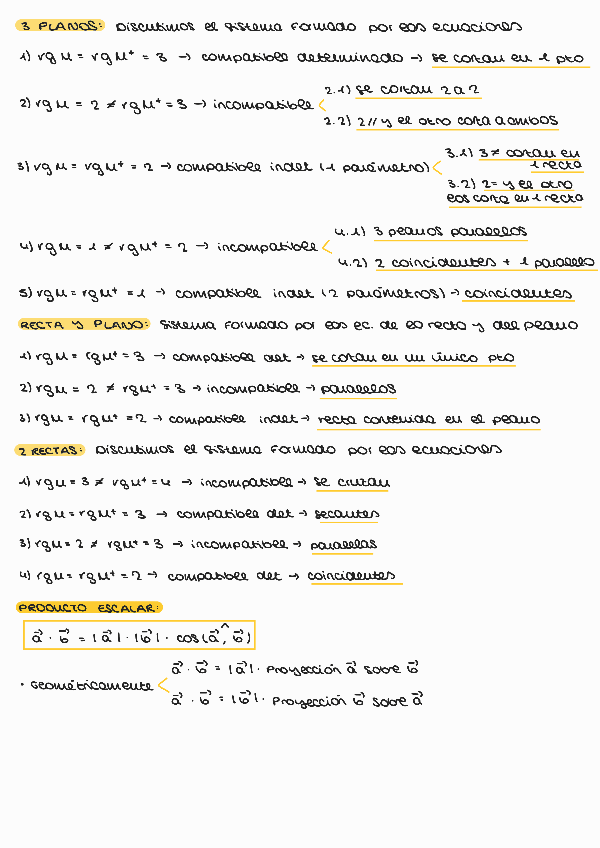 3 PLANOS: Discutimos el sistema formado por las ecuaciones
1) rg M = rg M⁺ = 3 → compatible determinado → se cortan en 1 pto
2) rg M = 2 ≠ rg M⁺ = 3 → incompatible < 2.1) se cortan 2 a 2
2.2) 2 // y el otro corta a ambos
3) rg M = rg M⁺ = 2 → compatible indet (1 parámetro) < 3.1) 3 ≠ cortan en 1 recta
3.2) 2 = y el otro
los corta en 1 recta
4) rg M = 1 ≠ rg M⁺ = 2 → incompatible < 4.1) 3 planos paralelos
4.2) 2 coincidentes + 1 paralelo
5) rg M = rg M⁺ = 1 → compatible indet (2 parámetros) → coincidentes
RECTA Y PLANO: Sistema formado por las ec. de la recta y del plano
1) rg M = rg M⁺ = 3 → compatible det → se cortan en un único pto
2) rg M = 2 ≠ rg M⁺ = 3 → incompatible → paralelos
3) rg M = rg M⁺ = 2 → compatible indet → recta contenida en el plano
2 RECTAS: Discutimos el sistema formado por las ecuaciones
1) rg M = 3 ≠ rg M⁺ = 4 → incompatible → se cruzan
2) rg M = rg M⁺ = 3 → compatible det → secantes
3) rg M = 2 ≠ rg M⁺ = 3 → incompatible → paralelas
4) rg M = rg M⁺ = 2 → compatible det → coincidentes
PRODUCTO ESCALAR:
a⃗ · b⃗ = |a⃗| · |b⃗| · cos(a⃗^b⃗)
· Geométricamente < a⃗ · b⃗ = |a⃗| · Proyección a⃗ sobre b⃗
a⃗ · b⃗ = |b⃗| · Proyección b⃗ sobre a⃗